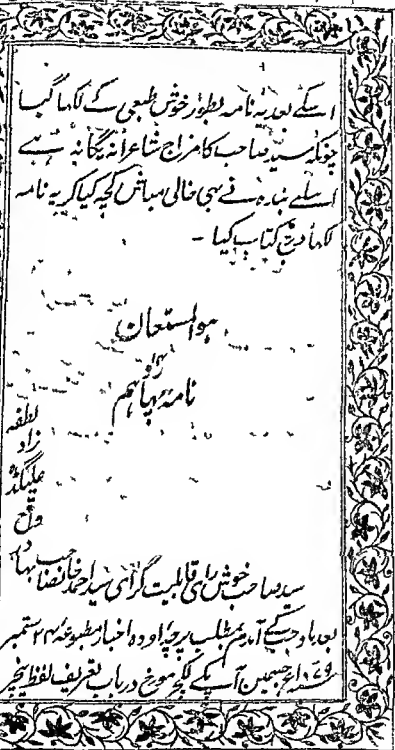 اسکے بعد یہ نامہ بطور خوش طبعی کے لکھا گیا
چونکہ سید صاحب کا مزاج شاعرانہ یگانہ ہے
اسلئے بندہ نے بھی خالی مباش کچھ کیا کر یہ نامہ
لکھا درج کتاب کیا -
ہوالمستعان
نامہ نہم
لطفہ
زاد
علیگڈہ
واقع
سید صاحب خوش رای قابلیت گرای سید احمد خانصاحب بہادر
بعد یاد حب کے آمدم بمطلب پرچہ اودہ اخبار مطبوعہ ۲۴ ستمبر
۱۸۷۹ء جسمین آپ کے لکچر مورخ درباب تعریف لفظ نیچر